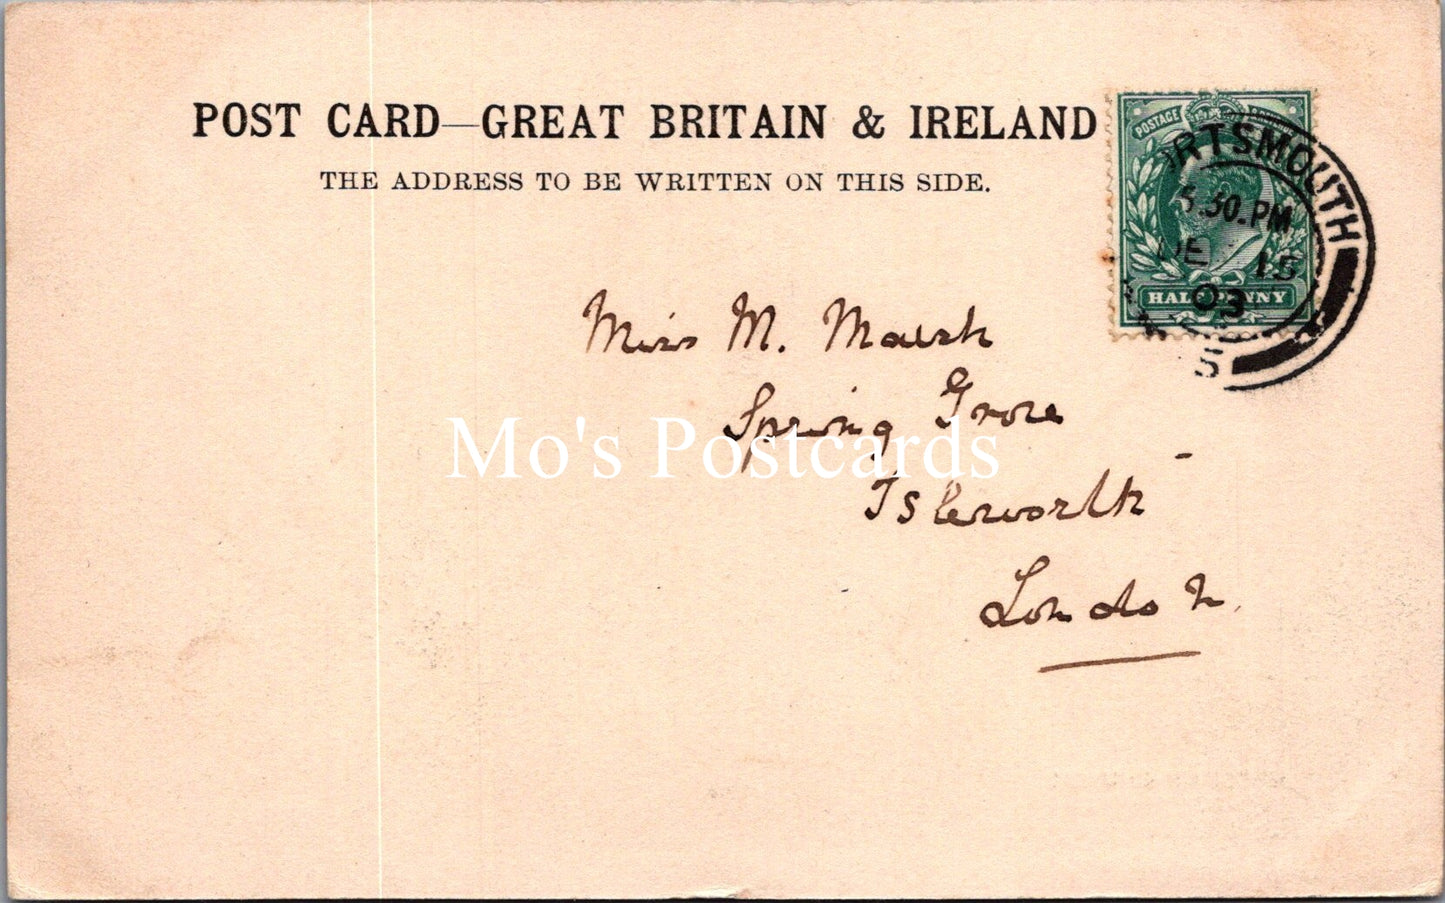 POST CARD—GREAT BRITAIN & IRELAND
THE ADDRESS TO BE WRITTEN ON THIS SIDE.
POSTAGE
HALFPENNY
RTSMOUTH
5.30.PM
DE 15
03
5
Miss M. Marsh
Spring Grove
Isleworth
London
Mo's Postcards